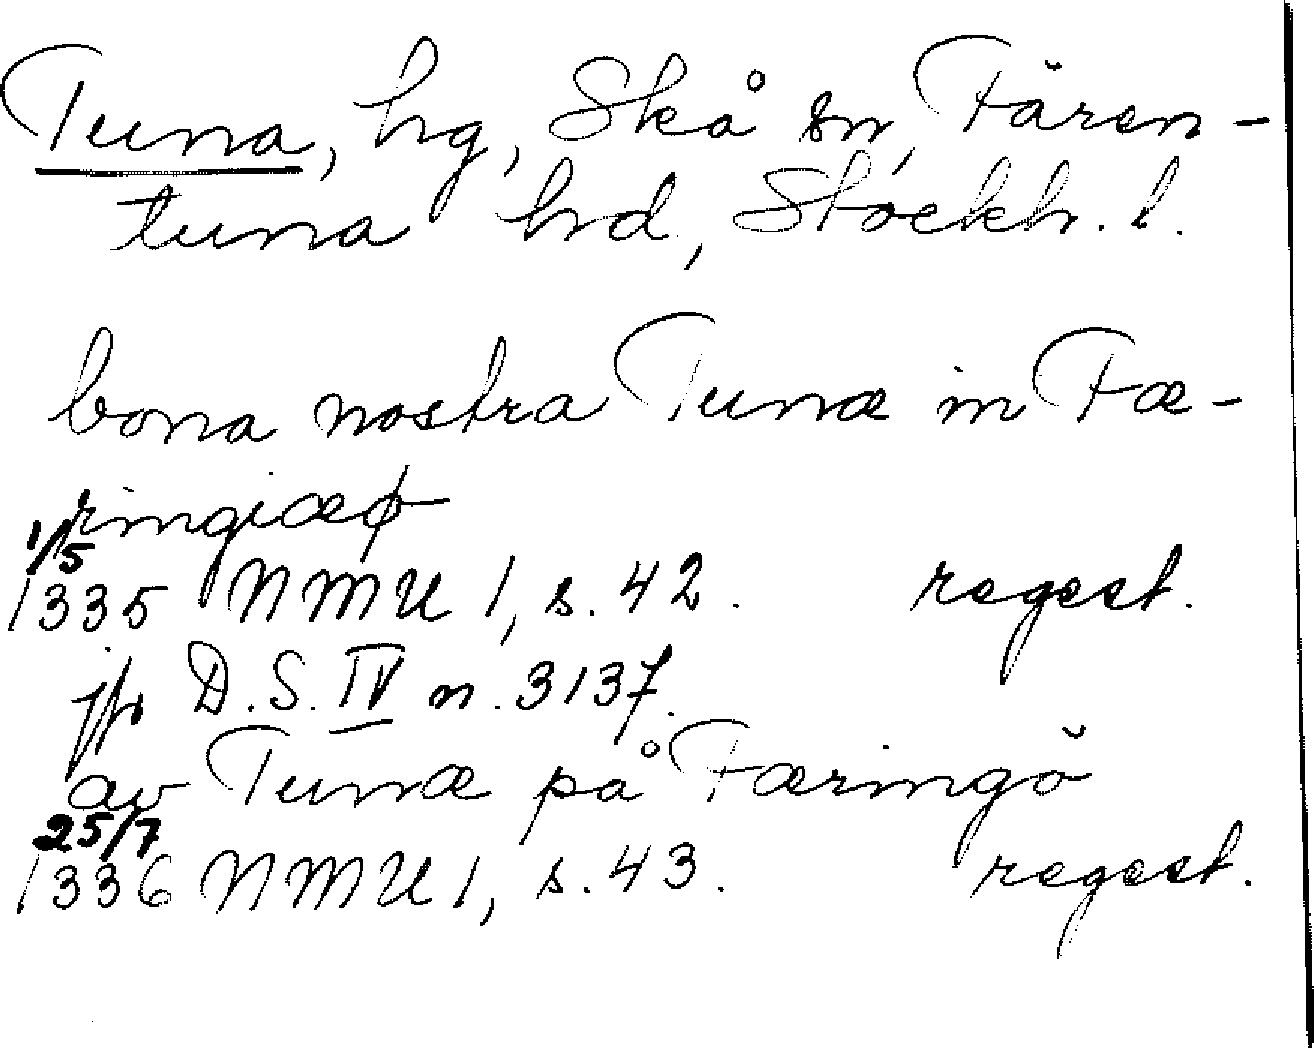 Tuna, hg, Skå sn, Fären-
tuna hrd, Stockh. l.
bona nostra Tunæ in Fæ-
ringiæø
1/5
1335 NMU 1, s. 42. regest.
jfr D.S. IV n. 3137.
av Tunæ på Færingö
25/7
1336 NMU 1, s. 43. regest.